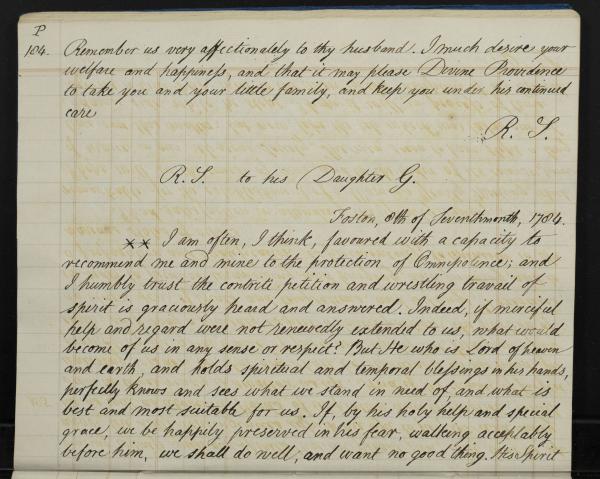 P
104.
Remember us very affectionately to thy husband. I much desire your
welfare and happiness, and that it may please Divine Providence
to take you and your little family, and keep you under his continued
care
R. S.
R. S. to his Daughter G.
Foston, 8th of Seventhmonth, 1784.
xx I am often, I think, favoured with a capacity to
recommend me and mine to the protection of Omnipotence; and
I humbly trust the contrite petition and wrestling travail of
spirit is graciously heard and answered. Indeed, if merciful
help and regard were not renewedly extended to us, what would
become of us in any sense or respect? But He who is Lord of heaven
and earth, and holds spiritual and temporal blessings in his hands,
perfectly knows and sees what we stand in need of, and what is
best and most suitable for us. If, by his holy help and special
grace, we be happily preserved in his fear, walking acceptably
before him, we shall do well, and want no good thing. His Spirit